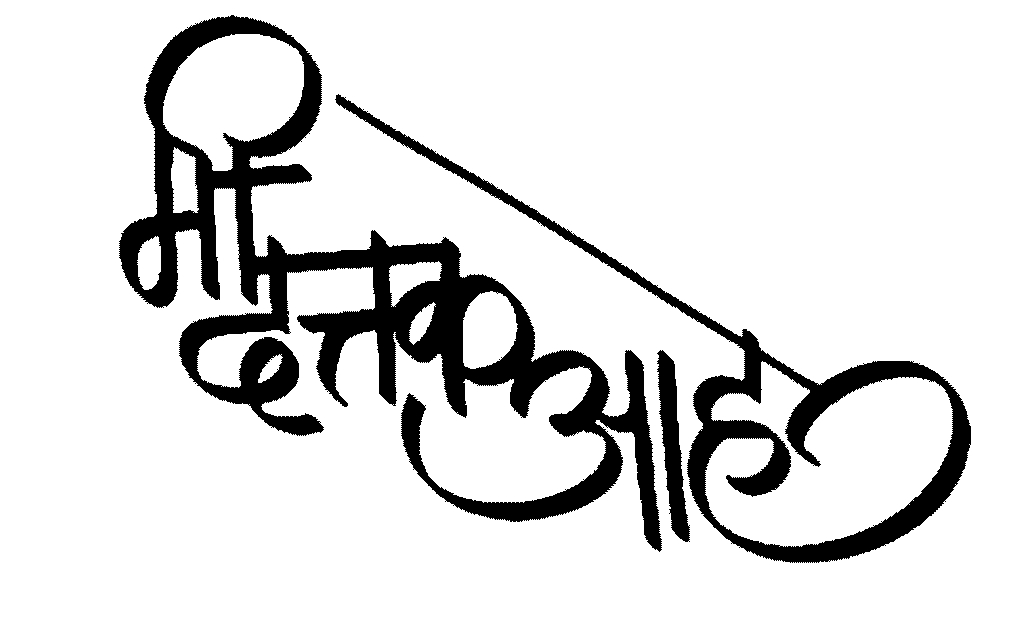 मी दत्तक आहे